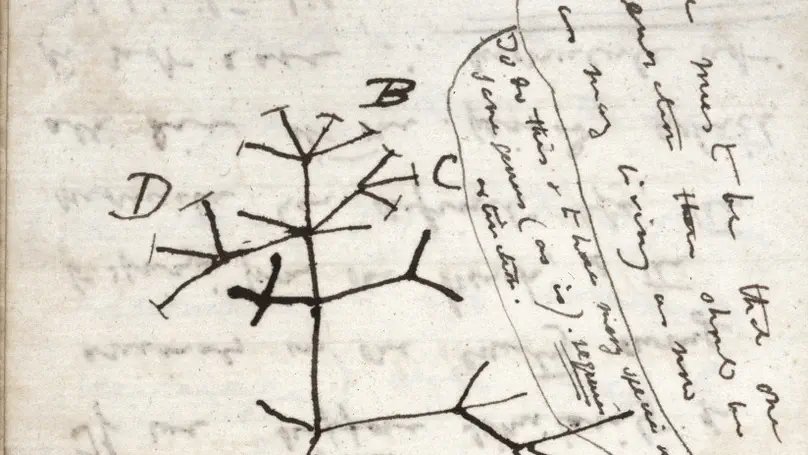 B
D
C
must be that one
then should be
as many living as now
To do this & to have many species
same genus (as is). requires
extinction.